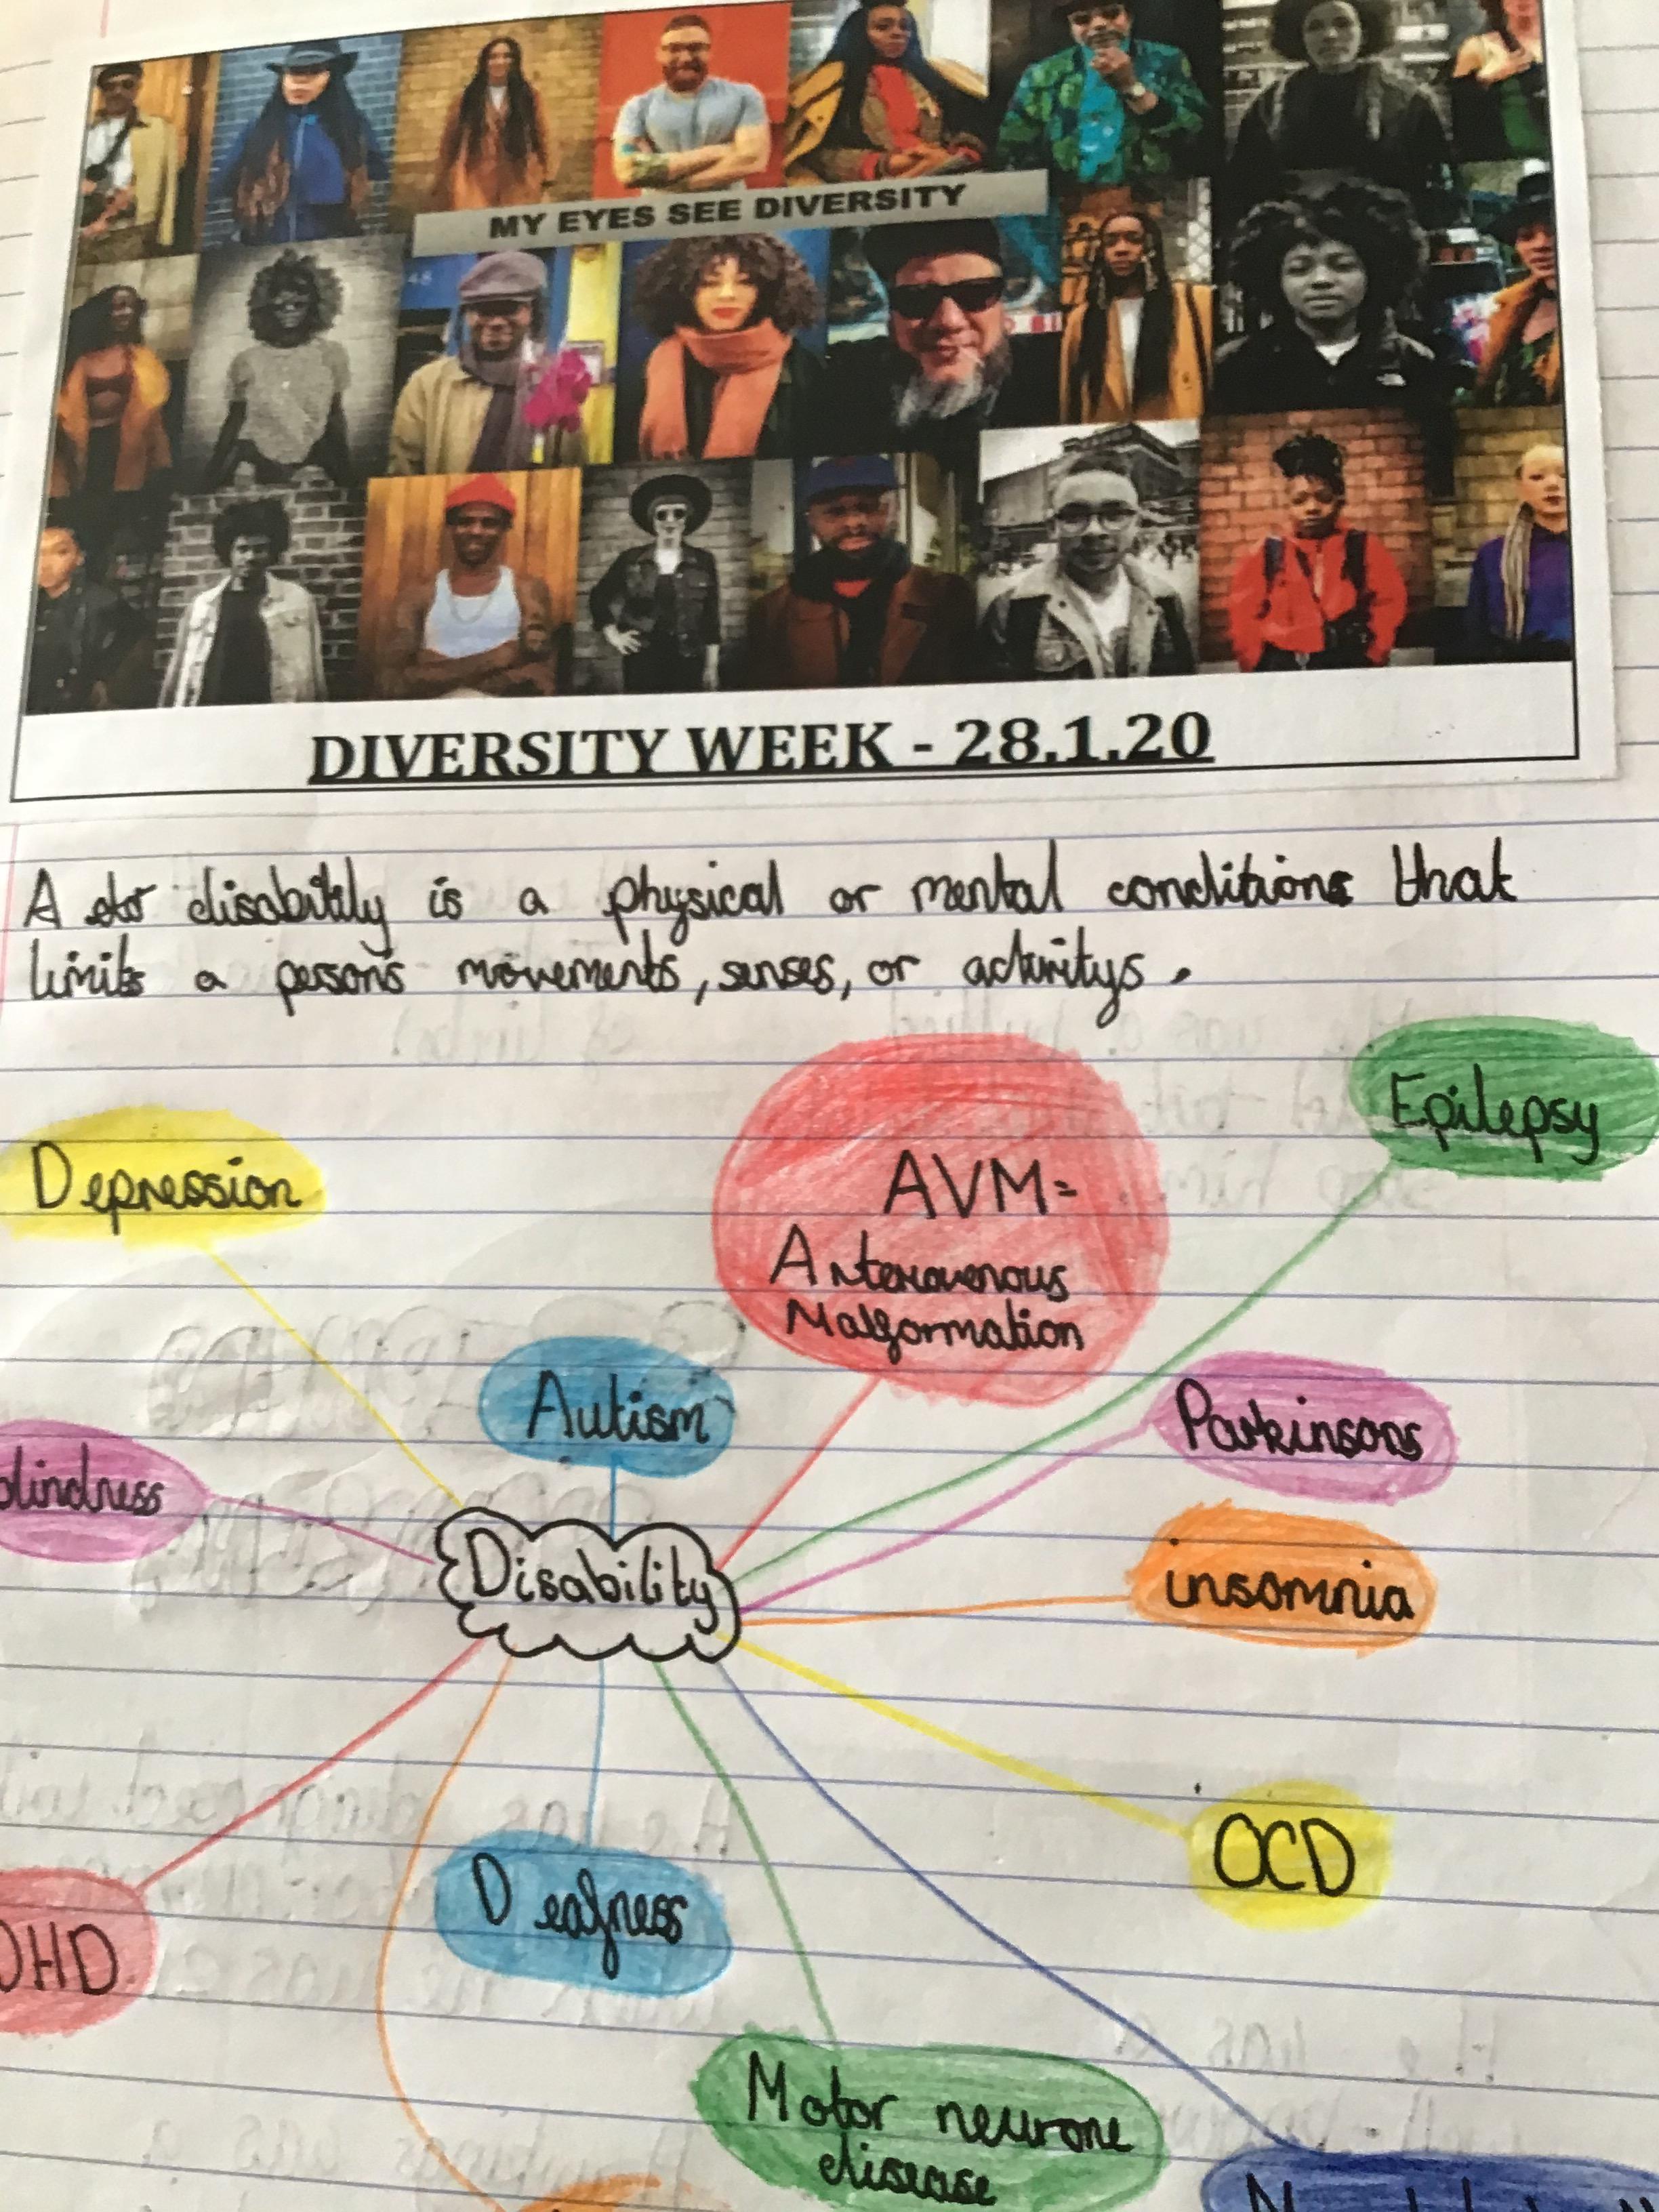 MY EYES SEE DIVERSITY
48
DIVERSITY WEEK - 28.1.20
A disability is a physical or mental conditions that
limits a persons movements, senses, or activitys.
Epilepsy
Depression
AVM=
Arteriovenous
Malformation
Autism
Parkinsons
blindness
Disability
insomnia
OCD
Deafness
DHD
Motor neurone
disease